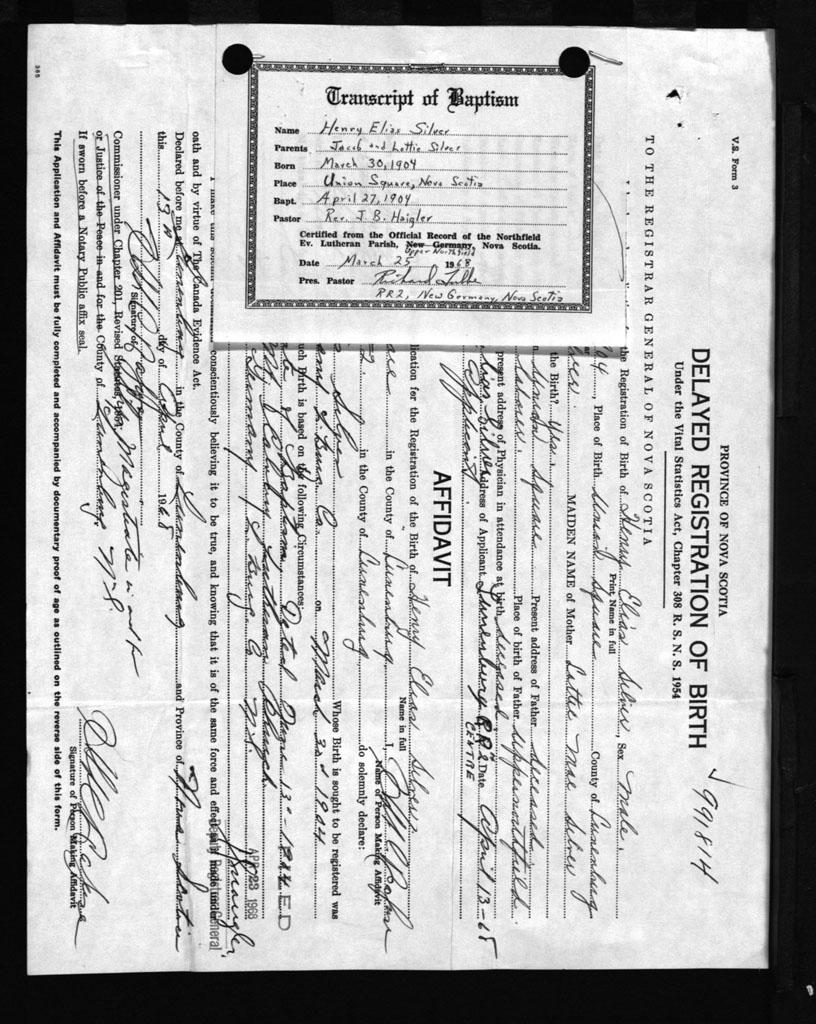 Transcript of Baptism
Name Henry Elias Silver
Parents Jacob and Lottie Silver
Born March 30, 1904
Place Union Square, Nova Scotia
Bapt. April 27, 1904
Pastor Rev. J. B. Haigler
Certified from the Official Record of the Northfield
Ev. Lutheran Parish, New Germany, Nova Scotia.
Upper Northfield
Date March 25 1968
Pres. Pastor Richard
RR2, New Germany, Nova Scotia
V.S. Form 3
PROVINCE OF NOVA SCOTIA
DELAYED REGISTRATION OF BIRTH
Under the Vital Statistics Act, Chapter 308 R. S. N. S. 1954
√ 991814
TO THE REGISTRAR GENERAL OF NOVA SCOTIA
the Registration of Birth of Henry Elias Silver, Sex Male,
Print Name in full
04, Place of Birth Union Square County of Lunenburg
MAIDEN NAME of Mother Lottie Mae Silver
the Birth? Yes.
Union Square Present address of Father deceased
Place of birth of Father Upper Northfield
present address of Physician in attendance at birth deceased
Elias Silver Address of Applicant Lunenburg R.R. 2 Date April 13-68
Applicant) CENTRE
AFFIDAVIT
lication for the Registration of the Birth of Henry Elias Silver
Name in full
in the County of Lunenburg I,
Name of Person Making Affidavit
in the County of Lunenburg do solemnly declare:
Silver Whose Birth is sought to be registered was
Co. on March 30 1904
uch Birth is based on the following Circumstances:
of Baptism Dated
Lutheran Church
conscientiously believing it to be true, and knowing that it is of the same force and effect as if made under
oath and by virtue of The Canada Evidence Act.
Deputy Registrar General
APR 23 1968
Declared before me at Lunenburg in the County of Lunenburg and Province of Nova Scotia
this 13th day of April 1968
Signature of
Commissioner under Chapter 201, Revised Statutes, 1954, Magistrate in and for
or Justice of the Peace in and for the County of Lunenburg. N.S.
If sworn before a Notary Public affix seal.
Signature of Person Making Affidavit
This Application and Affidavit must be fully completed and accompanied by documentary proof of age as outlined on the reverse side of this form.